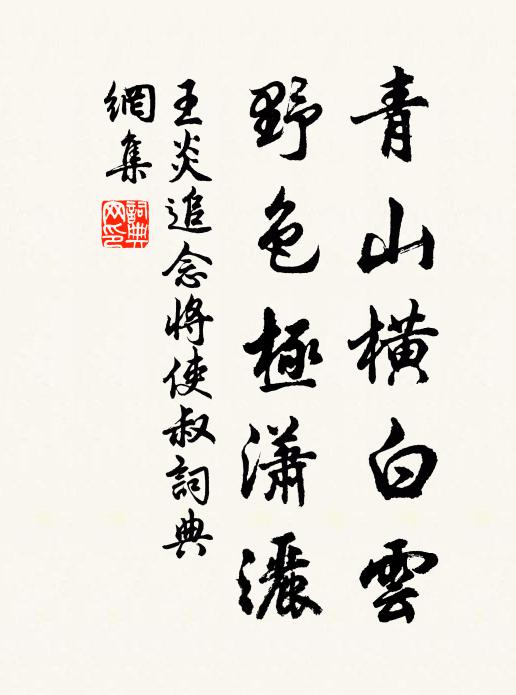 青山橫白雲
野色極瀟灑
王炎追念將使叔詞典
網集
詞典網印